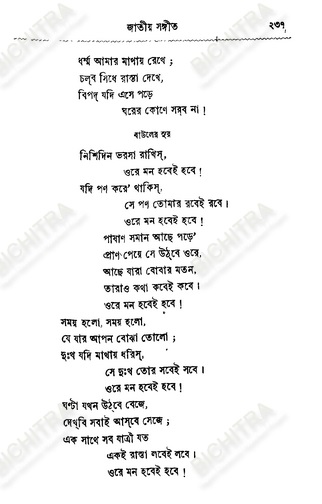 জাতীয় সঙ্গীত ২৩৭
ধর্ম্ম আমার মাথায় রেখে ;
চল্‌ব সিধে রাস্তা দেখে,
বিপদ্‌ যদি এসে পড়ে
ঘরের কোণে সর্‌ব না !
বাউলের সুর
নিশিদিন ভরসা রাখিস্‌,
ওরে মন হবেই হবে !
যদি পণ করে' থাকিস্‌,
সে পণ তোমার রবেই রবে ।
ওরে মন হবেই হবে !
পাষাণ সমান আছে পড়ে'
প্রাণ পেয়ে সে উঠ্‌বে ওরে,
আছে যারা বোবার মতন,
তারাও কথা কবেই কবে ।
ওরে মন হবেই হবে !
সময় হলো, সময় হলো,
যে যার আপন বোঝা তোলো ;
দুঃখ যদি মাথায় ধরিস্‌,
সে দুঃখ তোর সবেই সবে ।
ওরে মন হবেই হবে !
ঘণ্টা যখন উঠ্‌বে বেজে,
দেখ্‌বি সবাই আস্‌বে সেজে ;
এক সাথে সব যাত্রী যত
একই রাস্তা লবেই লবে ।
ওরে মন হবেই হবে !
BICHITRA